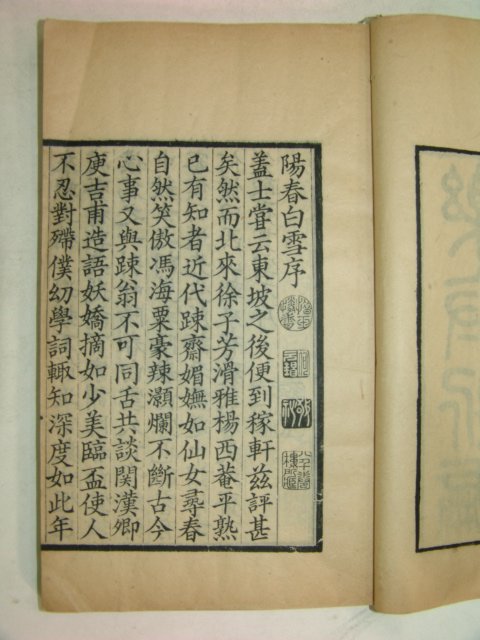 陽春白雪序
蓋士甞云東坡之後便到稼軒兹評甚
矣然而北來徐子芳滑雅楊西菴平熟
已有知者近代踈齋媚嫵如仙女尋春
自然笑傲馮海粟豪辣灝爛不斷古今
心事又與踈翁不可同舌共談関漢卿
庾吉甫造語妖嬌摘如少美臨盃使人
不忍對殢僕幼學詞輙知深度如此年